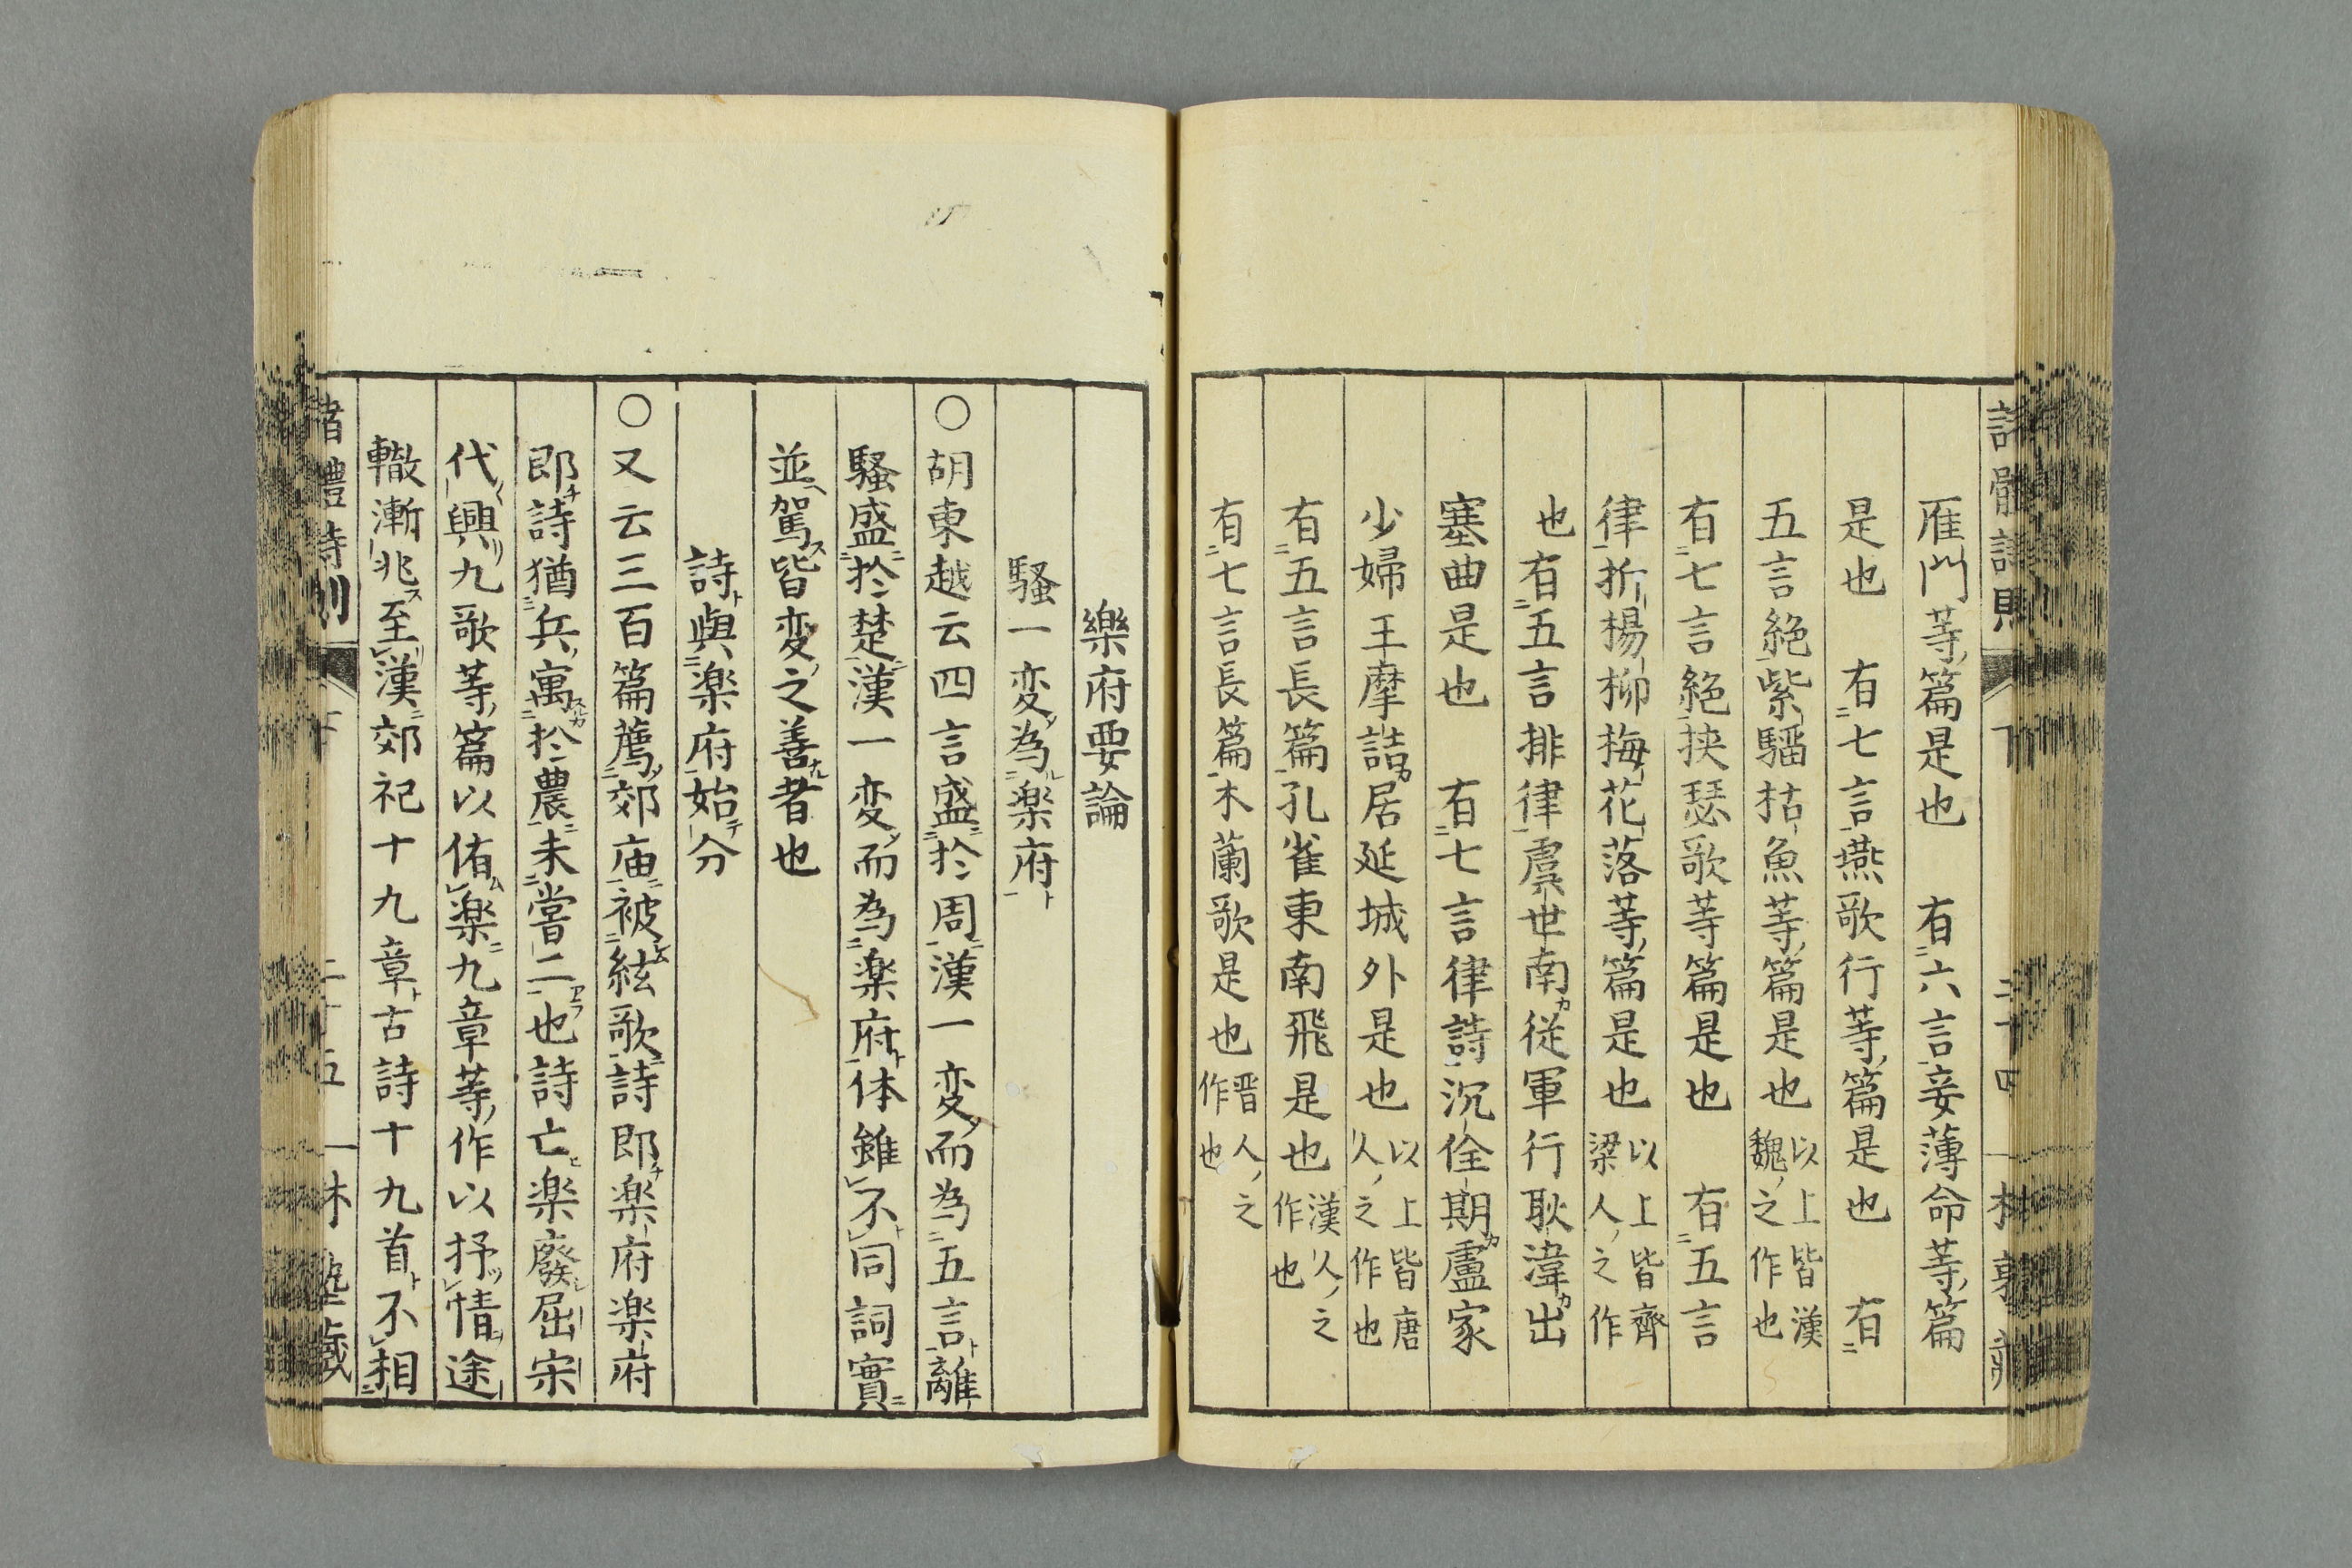 雁門等篇是也　有六言妾薄命等篇
是也　有七言燕歌行等篇是也　有
五言絶紫騮枯魚等篇是也以上皆漢魏之作也
有七言絶挟瑟歌等篇是也　有五言
律折楊柳梅花落等篇是也以上皆齊梁人之作
也有五言排律虞世南従軍行耿湋出
塞曲是也　有七言律詩沉佺期盧家
少婦王摩詰居延城外是也以上皆唐人之作也
有五言長篇孔雀東南飛是也漢人之作也
有七言長篇木蘭歌是也晋人之作也
樂府要論
騷一変為楽府
○胡東越云四言盛於周漢一変而為五言離
騷盛於楚漢一変而為楽府体雖不同詞實
並駕皆変之善者也
詩與楽府始分
○又云三百篇薦郊庙被絃歌詩即楽府楽府
即詩猶兵寓於農未嘗二也詩亡楽廢屈宋
代興九歌等篇以侑楽九章等作以抒情途
轍漸兆至漢郊祀十九章古詩十九首不相